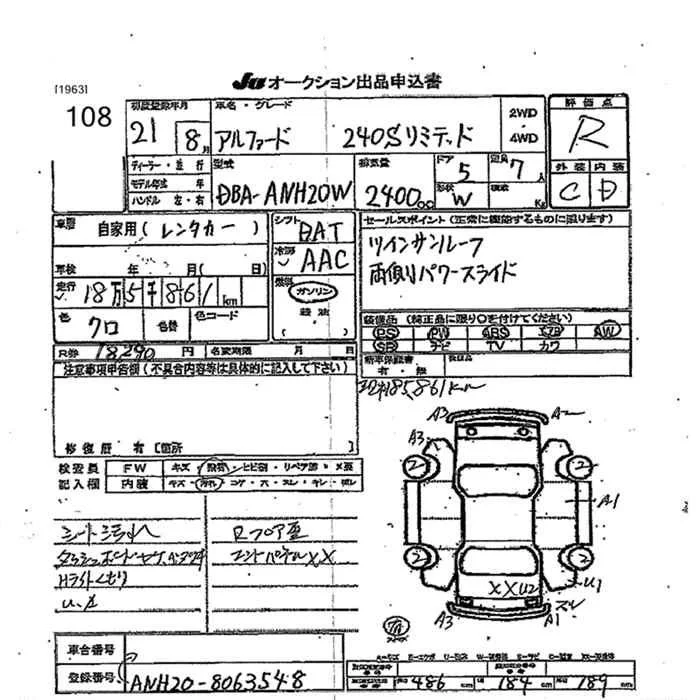 [1963]
JU オークション出品申込書
108
初度登録年月
21 8月
車名・グレード
アルファード 240Sリミテッド
2WD
・
4WD
評価点
R
ディーラー・並行
モデル年式 年
ハンドル 左・右
型式
DBA-ANH20W
排気量
2400cc
ドア
5
形状
W
定員
7人
積載
Kg
外装 内装
C D
車歴
自家用(レンタカー)
車検 年 月( 日)
走行
18万5千861km
色
クロ
色替
色コード
シフト
BAT
冷房
AAC
燃料
ガソリン
軽油
セールスポイント(正常に機能するものに限ります)
ツインサンルーフ
両側パワースライド
装備品(純正品に限り○を付けてください)
PS PW ABS エアB AW
SB ナビ TV カワ
R券 18290 円 名変期限 月 日
新車保証書
有・無
後日品
注意事項申告欄(不具合内容等は具体的に記入して下さい)
185,861km
修復歴 有[箇所 ]
検査員
記入欄
FW キズ・飛石・ヒビ割・リペア跡・X要
内装 キズ・汚れ・コゲ・穴・スレ・キレ・欠レ
シート汚れ
Hライトくもり
Rフロア歪
エンドパネルXX
A3 A2
A3 A3
2 2
A1
2 2
XXU2
U1
スレ
A3 A1
7A
スペア
車台番号
登録番号
ANH20-8063548
486cm 184cm 189cm